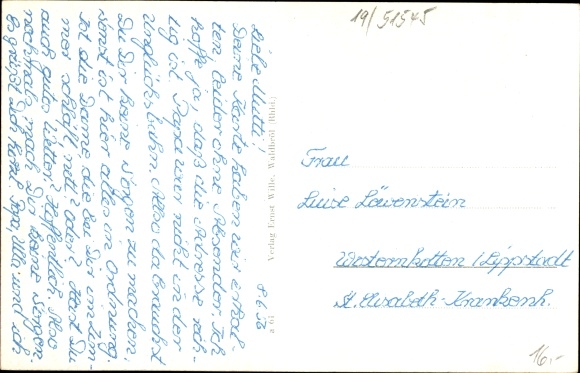 19/51545
Liebe Mutti!
Deine Karte haben wir erhal-
ten, leider ohne Absender. Ich
hoffe ja, daß die Adresse rich-
tig ist. Papa war nicht in der
Unglücksbahn. Also da brauchst
Du Dir keine Sorgen zu machen.
Sonst ist hier alles in Ordnung.
Ist die Dame, die bei Dir im Zim-
mer schläft, nett? Oder? Hast Du
auch gutes Wetter? Hoffentlich. Also
nochmals, mach Dir keine Sorgen.
Es grüßt und küßt Papa, Ulli und ich
8.6.56
Verlag Ernst Wille, Waldbröl (Rhld.)
Frau
Luise Löwenstein
Westernkotten / Lippstadt
St. Elisabeth-Krankenh.
16,-